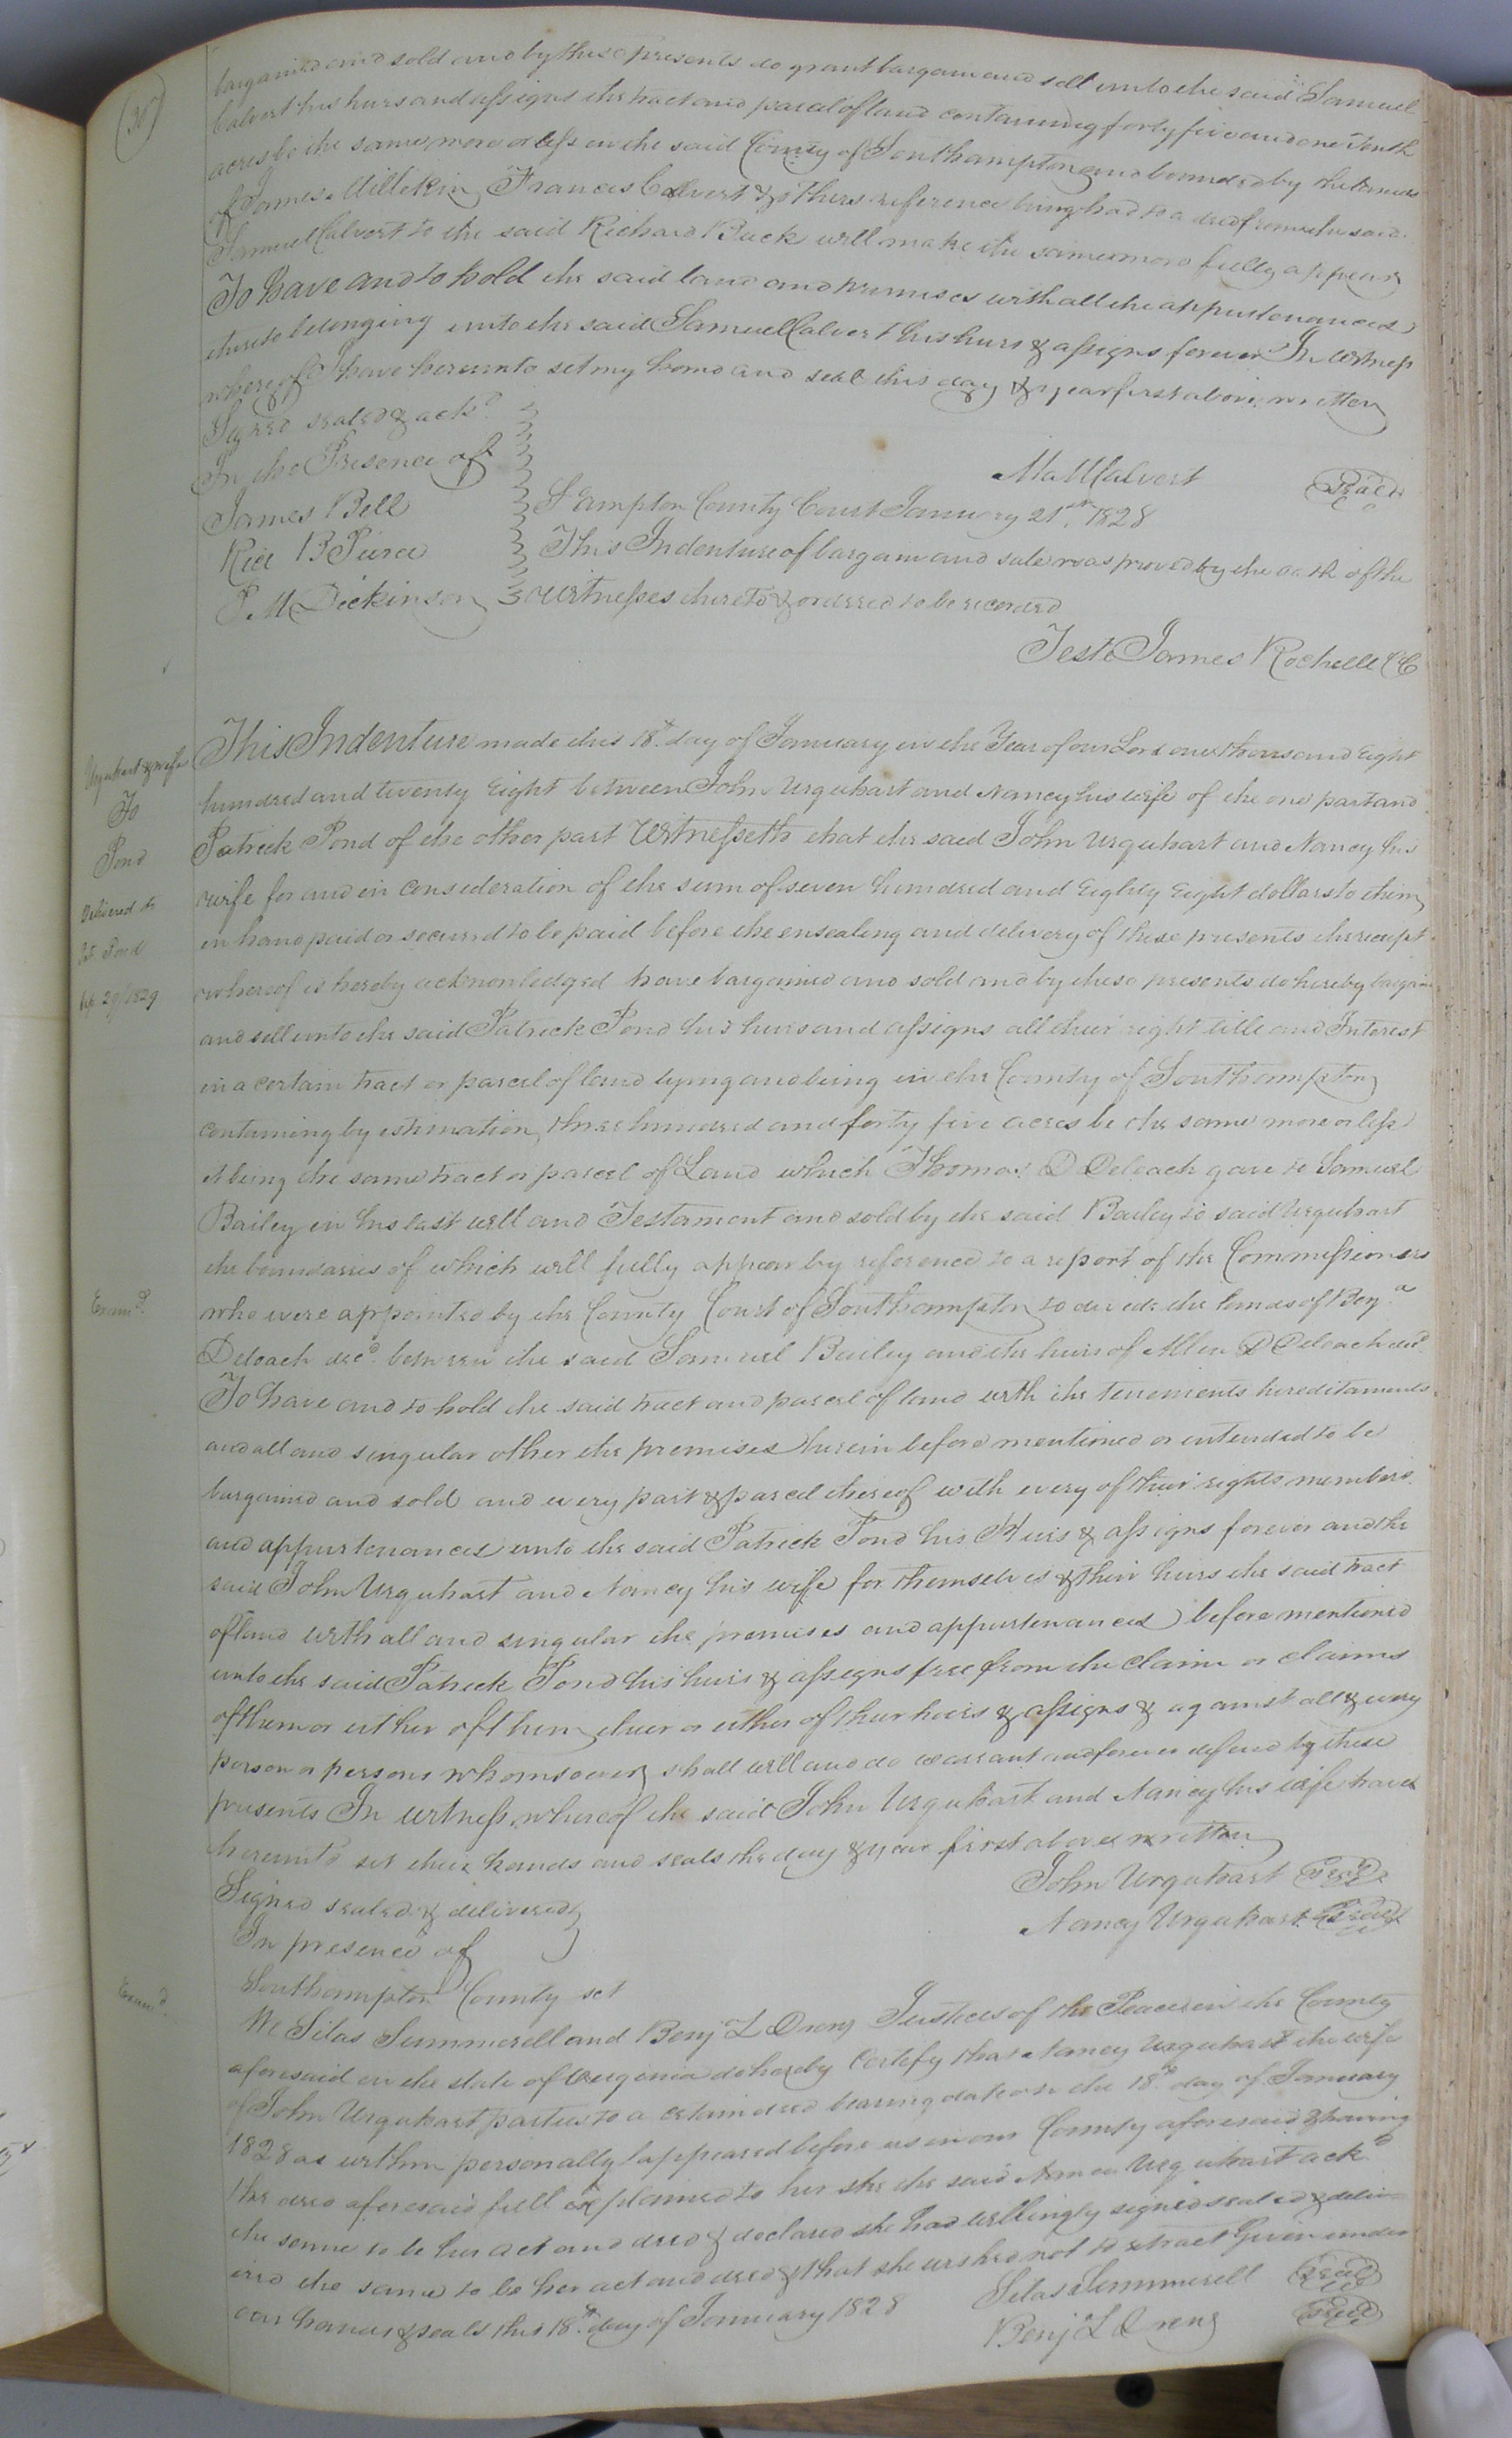 (30)
bargained and sold and by these presents do grant bargain and sell unto the said Samuel
Calvert his heirs and assigns the tract and parcel of land containing forty five and one Tenth
acres be the same more or less in the said County of Southampton and bounded by the lands
of James Millekin, Francis Calvert & others reference being had to a deed from the said
Samuel Calvert to the said Richard Buck will make the same more fully appear
To have and to hold the said land and premises with all the appurtenances
thereto belonging unto the said Samuel Calvert his heirs & assigns forever In witness
whereof I have hereunto set my hand and seal this day & year first above written
Signed sealed & ackd
In the Presence of
Calvert Seal
James Bell
S'ampton County Court January 21st 1828
Rice B Pierce
This Indenture of bargain and sale was proved by the oath of the
P. M Dickinson
witnesses thereto & ordered to be recorded
Teste James Rochelle CC
Urquhart & wife
To
Pond
Delivered to
Pat Pond
29/1829
This Indenture made this 18th day of January in the Year of our Lord one thousand Eight
hundred and twenty Eight between John Urquhart and Nancy his wife of the one part and
Patrick Pond of the other part Witnesseth that the said John Urquhart and Nancy his
wife for and in consideration of the sum of seven hundred and Eighty Eight dollars to them
in hand paid or secured to be paid before the ensealing and delivery of these presents the receipt
whereof is hereby acknowledged have bargained and sold and by these presents do hereby bargain
and sell unto the said Patrick Pond his heirs and assigns all their right title and Interest
in a certain tract or parcel of land lying and being in the County of Southampton
containing by estimation, three hundred and forty five acres be the same more or less
it being the same tract or parcel of Land which Thomas D Deloach gave to Samuel
Bailey in his last will and Testament and sold by the said Bailey to said Urquhart
the boundaries of which will fully appear by reference to a report of the Commissioners
Examd.
who were appointed by the County Court of Southampton to divide the lands of
Deloach decd. between the said Samuel Bailey and the heirs of Allen D Deloach decd
To have and to hold the said tract and parcel of land with the tenements hereditaments
and all and singular other the premises herein before mentioned or intended to be
bargained and sold and every part & parcel thereof with every of their rights members
and appurtenances unto the said Patrick Pond his Heirs & assigns forever and the
said John Urquhart and Nancy his wife for themselves & their heirs the said tract
of land with all and singular the premises and appurtenances before mentioned
unto the said Patrick Pond his heirs & assigns free from the claim or claims
of them or either of them their or either of their heirs & assigns & against all & every
person or persons whomsoever shall will and do warrant and forever defend by these
presents In witness whereof the said John Urquhart and Nancy his wife have
hereunto set their hands and seals the day & year first above written
John Urquhart Seal
Signed sealed & delivered
Nancy Urquhart Seal
In presence of
Examd.
Southampton County sct
We Silas Summerell and Benj L Justices of the Peace in the County
aforesaid in the state of Virginia do hereby Certify that Nancy Urquhart the wife
of John Urquhart parties to a certain deed bearing date on the 18th day of January
1828 as within personally appeared before us in our County aforesaid & having
the deed aforesaid full explained to her she the said Nancy Urquhart ackd
the same to be her act and deed & declared she had willingly signed sealed & deliv
ered the same to be her act and deed & that she wished not to retract Given under
our hands & seals this 18th day of January 1828
Silas Summerell Seal
Benj L Seal